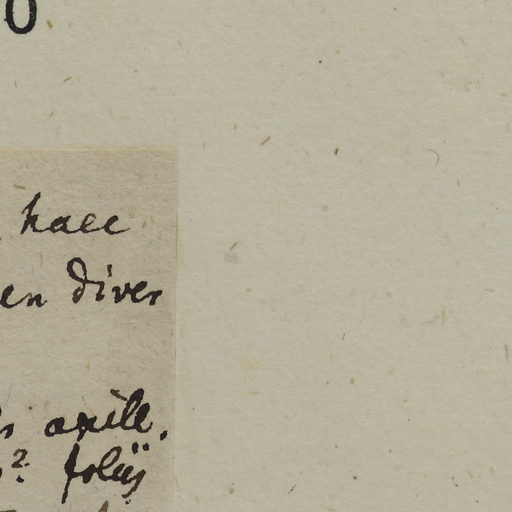 0
haec
en diver
axill.
? foliÿ